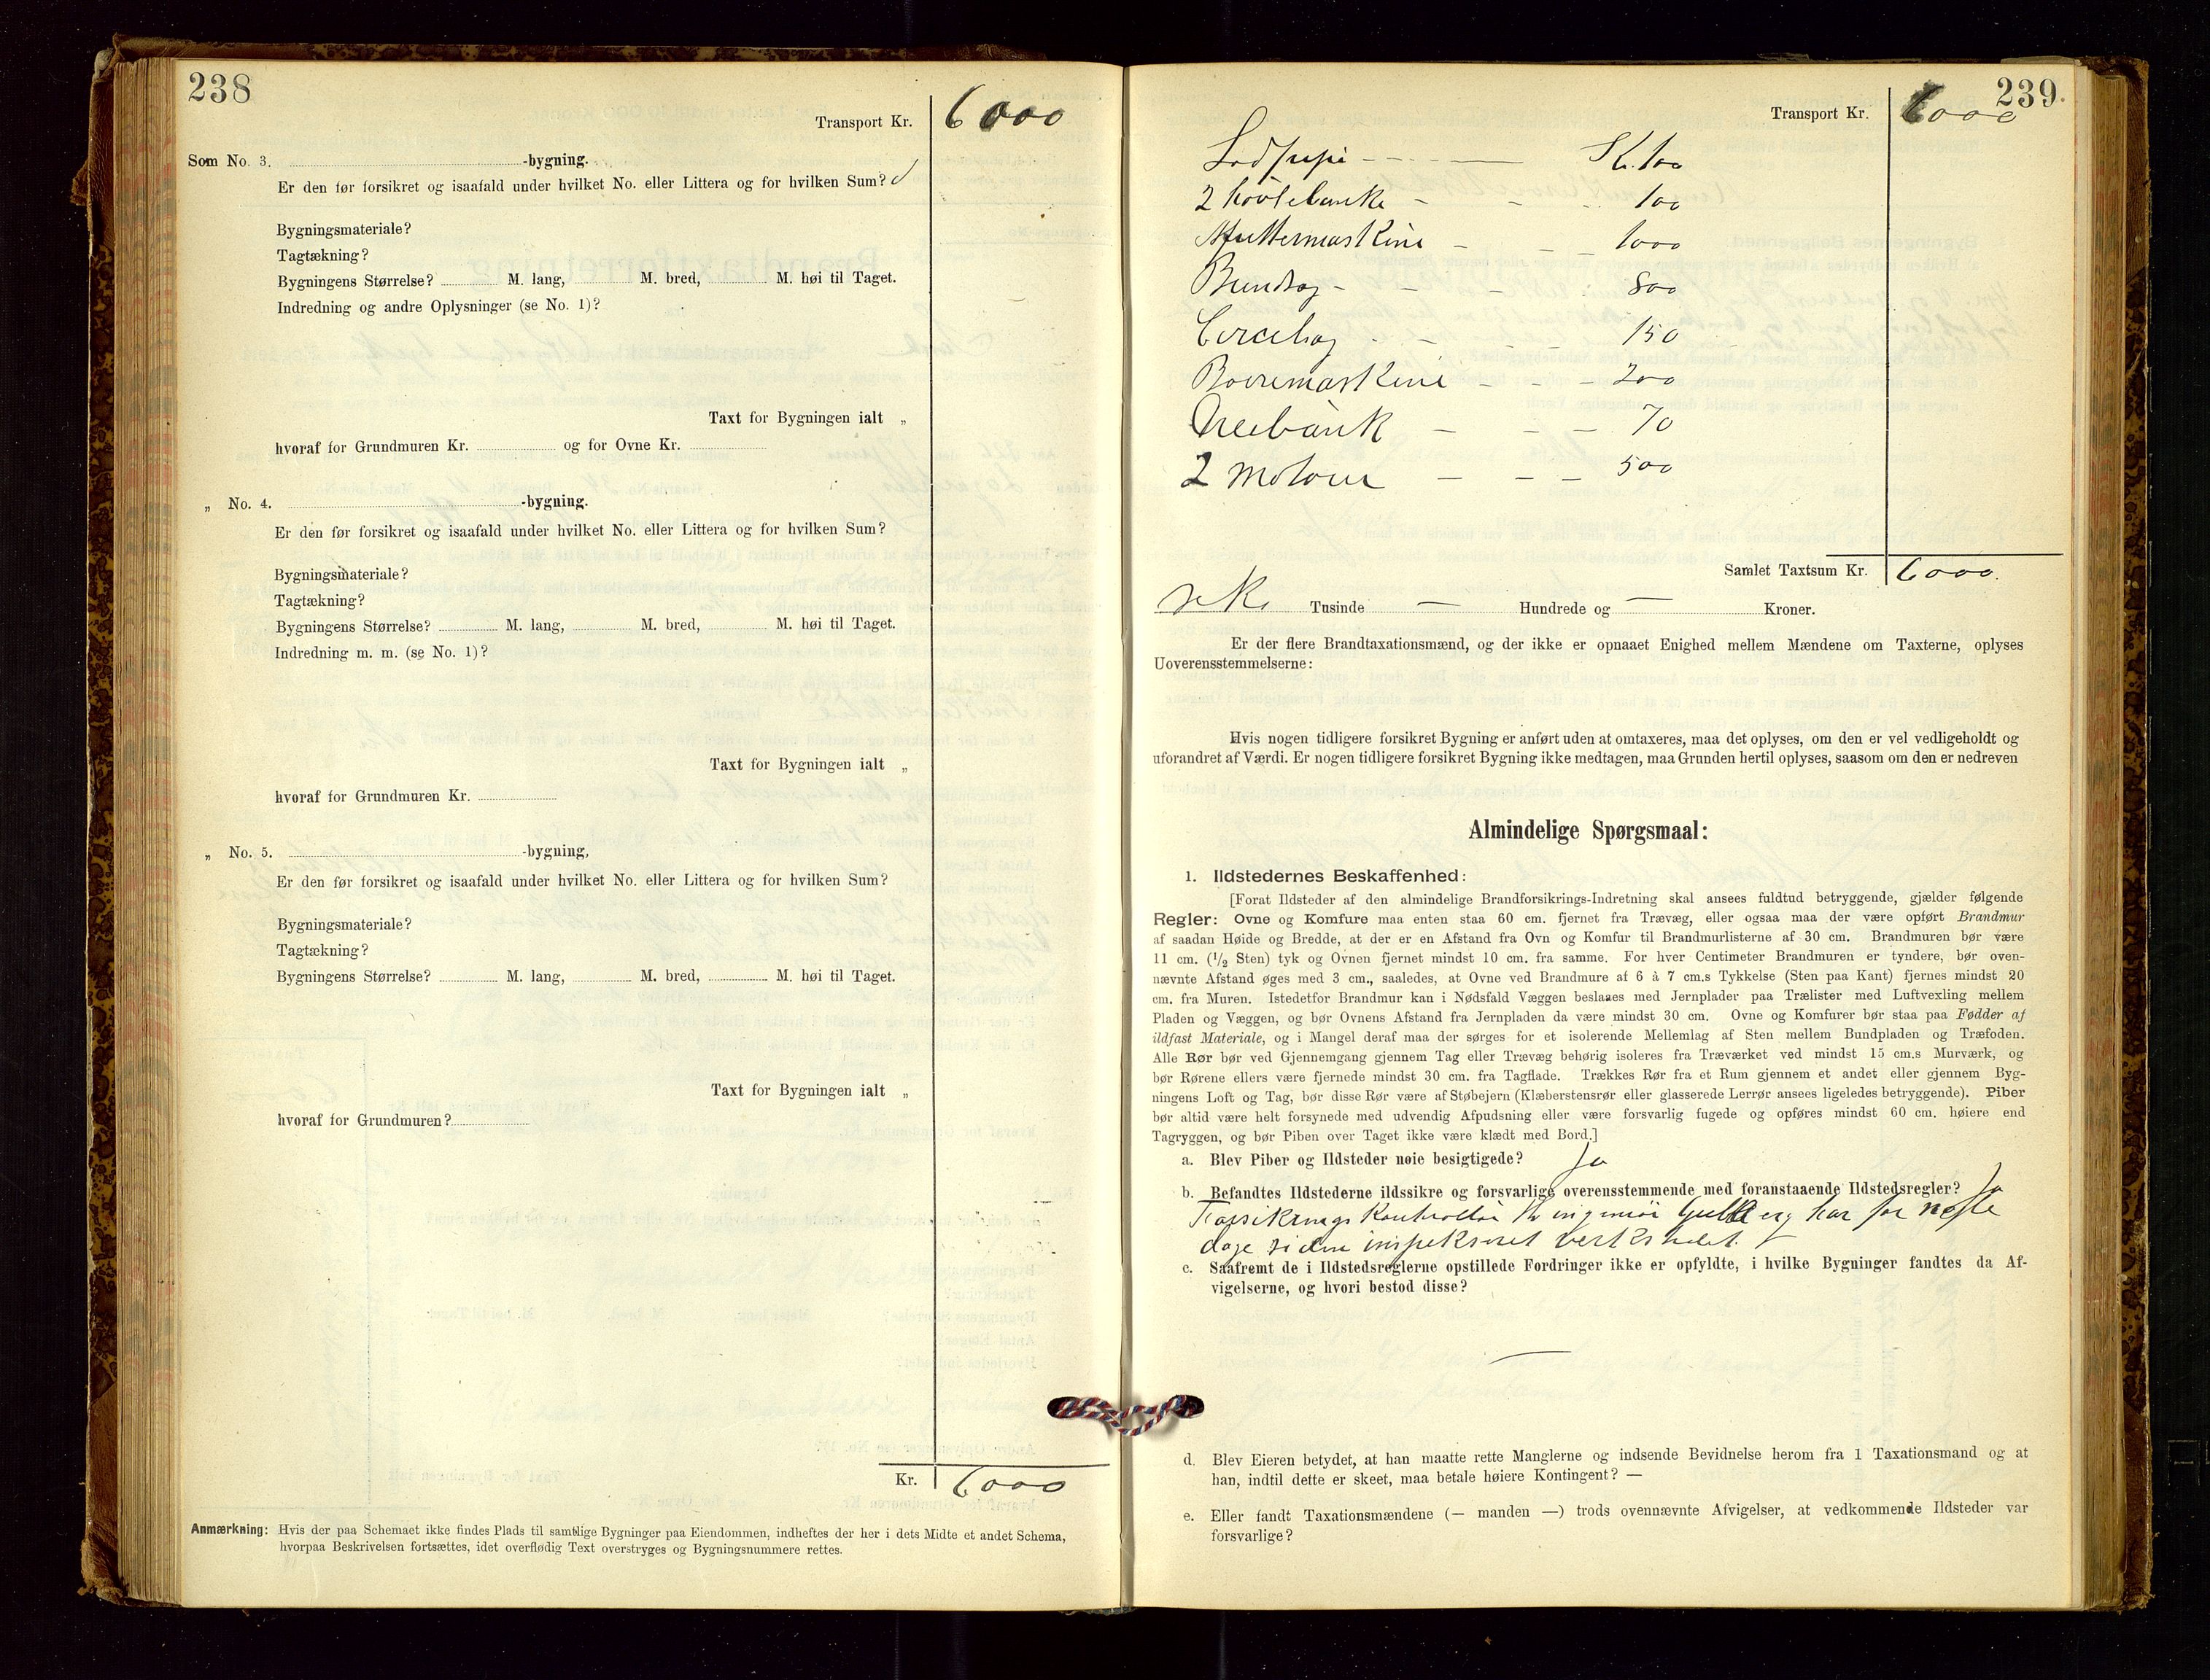 238
Transport Kr. 6000
Som No. 3. -bygning.
Er den før forsikret og isaafald under hvilket No. eller Littera og for hvilken Sum?
Bygningsmateriale?
Tagtækning?
Bygningens Størrelse? M. lang, M. bred, M. høi til Taget.
Indredning og andre Oplysninger (se No. 1)?
Taxt for Bygningen ialt „
hvoraf for Grundmuren Kr. og for Ovne Kr.
„ No. 4. -bygning.
Er den før forsikret og isaafald under hvilket No. eller Littera og for hvilken Sum?
Bygningsmateriale?
Tagtækning?
Bygningens Størrelse? M. lang, M. bred, M. høi til Taget.
Indredning m. m. (se No. 1)?
Taxt for Bygningen ialt „
hvoraf for Grundmuren Kr.
„ No. 5. -bygning,
Er den før forsikret og isaafald under hvilket No. eller Littera og for hvilken Sum?
Bygningsmateriale?
Tagtækning?
Bygningens Størrelse? M. lang, M. bred, M. høi til Taget.
Taxt for Bygningen ialt „
hvoraf for Grundmuren?
Kr. 6000
Anmærkning: Hvis der paa Schemaet ikke findes Plads til samtlige Bygninger paa Eiendommen, indheftes der her i dets Midte et andet Schema,
hvorpaa Beskrivelsen fortsættes, idet overflødig Text overstryges og Bygningsnummere rettes.
239.
Transport Kr. 6000
100
2 høvlebenke - - - 100
- - 1000
Bundsag - - - 800
- - - 150
Boremaskine - - - 200
- - - 70
2 Motorer - - - 500
Samlet Taxtsum Kr. 6000.
seks Tusinde — Hundrede og — Kroner.
Er der flere Brandtaxationsmænd, og der ikke er opnaaet Enighed mellem Mændene om Taxterne, oplyses
Uoverensstemmelserne:
Hvis nogen tidligere forsikret Bygning er anført uden at omtaxeres, maa det oplyses, om den er vel vedligeholdt og
uforandret af Værdi. Er nogen tidligere forsikret Bygning ikke medtagen, maa Grunden hertil oplyses, saasom om den er nedreven
Almindelige Spørgsmaal:
1. Ildstedernes Beskaffenhed:
[Forat Ildsteder af den almindelige Brandforsikrings-Indretning skal ansees fuldtud betryggende, gjælder følgende
Regler: Ovne og Komfure maa enten staa 60 cm. fjernet fra Trævæg, eller ogsaa maa der være opført Brandmur
af saadan Høide og Bredde, at der er en Afstand fra Ovn og Komfur til Brandmurlisterne af 30 cm. Brandmuren bør være
11 cm. (1/2 Sten) tyk og Ovnen fjernet mindst 10 cm. fra samme. For hver Centimeter Brandmuren er tyndere, bør oven-
nævnte Afstand øges med 3 cm., saaledes, at Ovne ved Brandmure af 6 à 7 cm.s Tykkelse (Sten paa Kant) fjernes mindst 20
cm. fra Muren. Istedetfor Brandmur kan i Nødsfald Væggen beslaaes med Jernplader paa Trælister med Luftvexling mellem
Pladen og Væggen, og bør Ovnens Afstand fra Jernpladen da være mindst 30 cm. Ovne og Komfurer bør staa paa Fødder af
ildfast Materiale, og i Mangel deraf maa der sørges for et isolerende Mellemlag af Sten mellem Bundpladen og Træfoden.
Alle Rør bør ved Gjennemgang gjennem Tag eller Trævæg behørig isoleres fra Træværket ved mindst 15 cm.s Murværk, og
bør Rørene ellers være fjernede mindst 30 cm. fra Tagflade. Trækkes Rør fra et Rum gjennem et andet eller gjennem Byg-
ningens Loft og Tag, bør disse Rør være af Støbejern (Klæberstensrør eller glasserede Lerrør ansees ligeledes betryggende). Piber
bør altid være helt forsynede med udvendig Afpudsning eller være forsvarlig fugede og opføres mindst 60 cm. høiere end
Tagryggen, og bør Piben over Taget ikke være klædt med Bord.]
a. Blev Piber og Ildsteder nøie besigtigede? Ja
b. Befandtes Ildstederne ildssikre og forsvarlige overensstemmende med foranstaaende Ildstedsregler? Ja
har for
dage siden inspekseret verkstedet.
c. Saafremt de i Ildstedsreglerne opstillede Fordringer ikke er opfyldte, i hvilke Bygninger fandtes da Af-
vigelserne, og hvori bestod disse?
—
d. Blev Eieren betydet, at han maatte rette Manglerne og indsende Bevidnelse herom fra 1 Taxationsmand og at
han, indtil dette er skeet, maa betale høiere Kontingent? —
e. Eller fandt Taxationsmændene (— manden —) trods ovennævnte Afvigelser, at vedkommende Ildsteder var
forsvarlige?